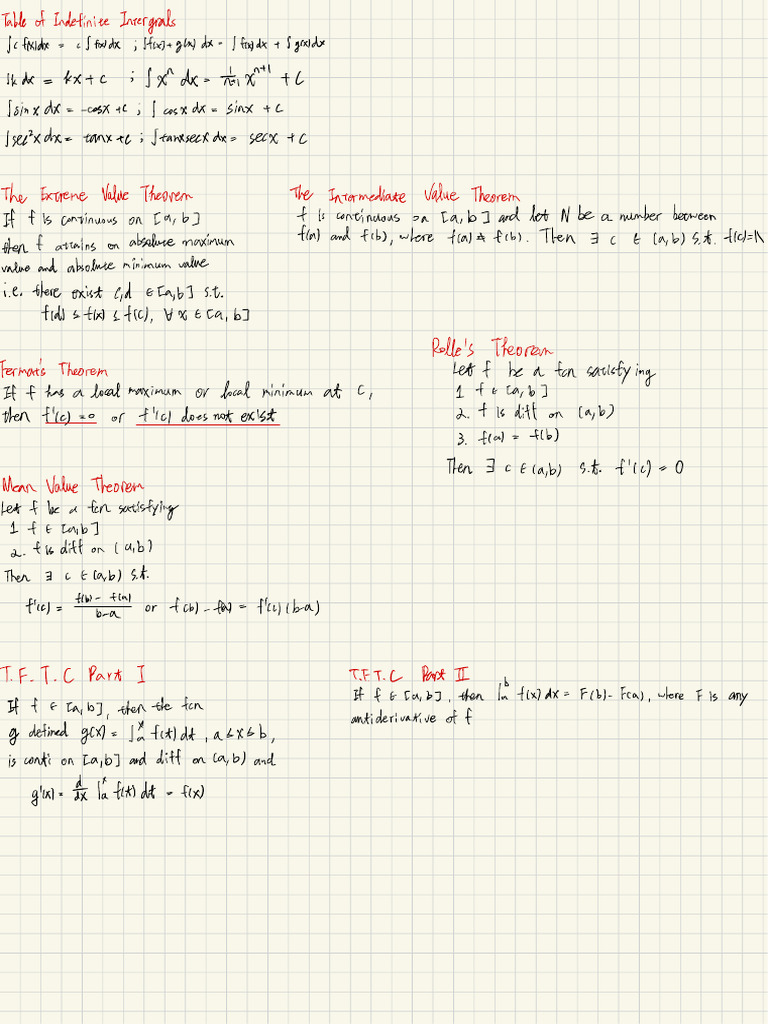 Table of Indefinite Intergrals
∫c f(x)dx = c∫f(x)dx ; ∫f(x)+g(x) dx = ∫f(x)dx + ∫g(x)dx
∫k dx = kx+c ; ∫xⁿ dx = 1/(n+1) xⁿ⁺¹ + C
∫sinx dx = -cosx+c ; ∫cosx dx = sinx + c
∫sec²x dx = tanx+c ; ∫tanxsecx dx = secx + c
The Extreme Value Theorem
If f is continuous on [a,b]
then f attains an absolute maximum
value and absolute minimum value
i.e. there exist c,d ∈ [a,b] s.t.
f(d) ≤ f(x) ≤ f(c), ∀ x ∈ [a,b]
The Intermediate Value Theorem
f is continuous on [a,b] and let N be a number between
f(a) and f(b), where f(a) ≠ f(b). Then ∃ c ∈ (a,b) s.t. f(c)=N
Fermat's Theorem
If f has a local maximum or local minimum at c,
then f'(c) = 0 or f'(c) does not exist
Rolle's Theorem
Let f be a fcn satisfying
1 f ∈ [a,b]
2. f is diff on (a,b)
3. f(a) = f(b)
Then ∃ c ∈ (a,b) s.t. f'(c) = 0
Mean Value Theorem
Let f be a fcn satisfying
1 f ∈ [a,b]
2. f is diff on (a,b)
Then ∃ c ∈ (a,b) s.t.
f'(c) = (f(b) - f(a))/(b-a) or f(b) - f(a) = f'(c)(b-a)
T.F.T.C Part I
If f ∈ [a,b], then the fcn
g defined g(x) = ∫ₐˣ f(t)dt, a ≤ x ≤ b,
is conti on [a,b] and diff on (a,b) and
g'(x) = d/dx ∫ₐˣ f(t) dt = f(x)
T.F.T.C Part II
If f ∈ [a,b], then ∫ₐᵇ f(x)dx = F(b) - F(a), where F is any
antiderivative of f